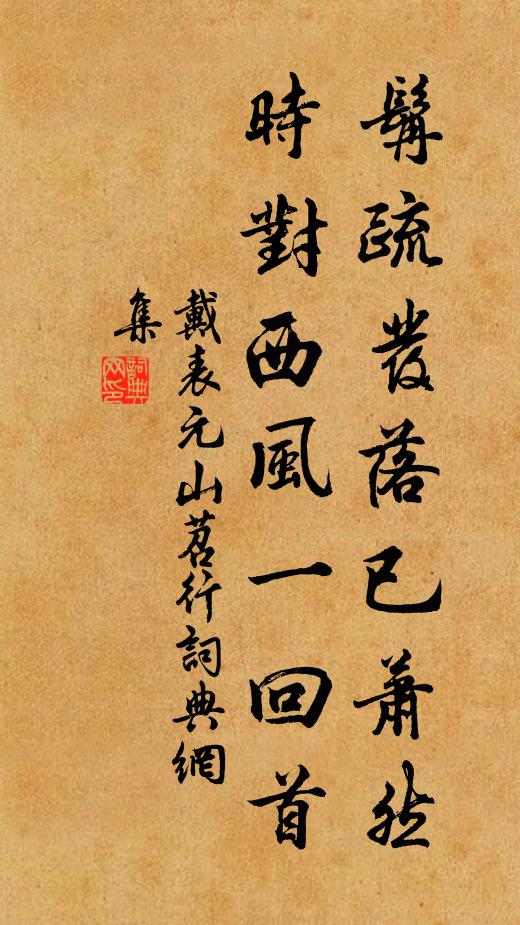 髯疏發落已蕭然
時對西風一回首
戴表元山茗行詞典網
集
詞典
网印